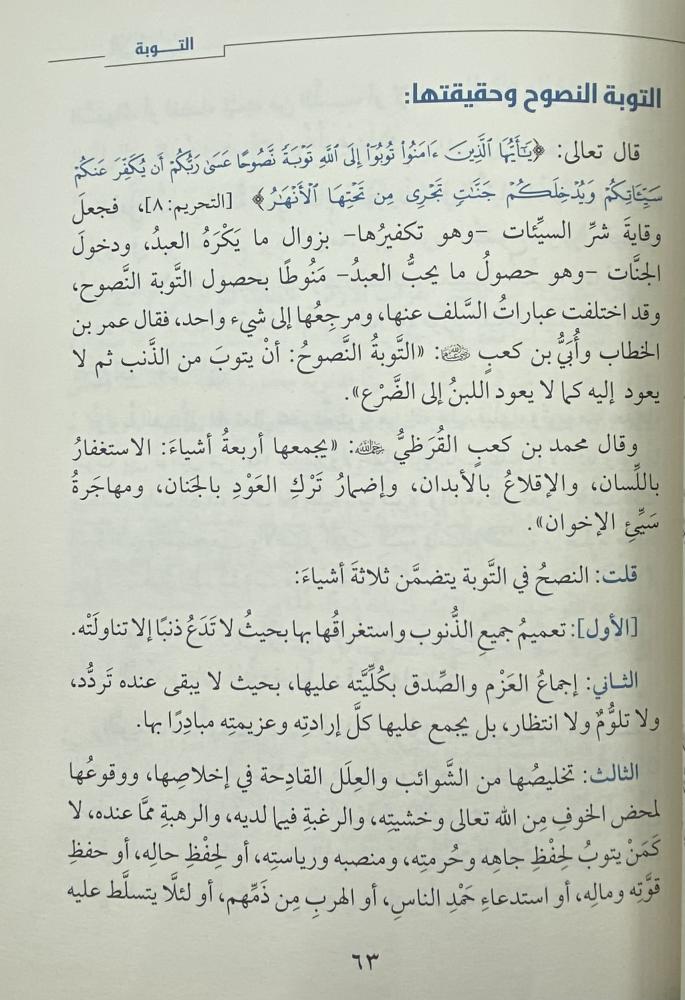 التـــوبة
التوبة النصوح وحقيقتها:
قال تعالى: ﴿يَٰٓأَيُّهَا ٱلَّذِينَ ءَامَنُوا۟ تُوبُوٓا۟ إِلَى ٱللَّهِ تَوْبَةً نَّصُوحًا عَسَىٰ رَبُّكُمْ أَن يُكَفِّرَ عَنكُمْ
سَيِّـَٔاتِكُمْ وَيُدْخِلَكُمْ جَنَّٰتٍ تَجْرِى مِن تَحْتِهَا ٱلْأَنْهَٰرُ﴾ [التحريم: ٨]، فجعلَ
وقايةَ شرِّ السيِّئات –وهو تكفيرُها– بزوال ما يَكْرَهُ العبدُ، ودخولَ
الجنَّات –وهو حصولُ ما يحبُّ العبدُ– مَنُوطًا بحصول التَّوبة النَّصوح،
وقد اختلفت عباراتُ السَّلف عنها، ومرجِعُها إلى شيء واحد، فقال عمر بن
الخطاب وأُبَيُّ بن كعبٍ ﷠: «التَّوبةُ النَّصوحُ: أنْ يتوبَ من الذَّنب ثم لا
يعود إليه كما لا يعود اللبنُ إلى الضَّرْع».
وقال محمد بن كعبٍ القُرَظيُّ ﷫: «يجمعها أربعةُ أشياءَ: الاستغفارُ
باللِّسان، والإقلاعُ بالأبدان، وإضمارُ تَرْكِ العَوْدِ بالجَنان، ومهاجَرةُ
سَيِّئِ الإخوان».
قلت: النصحُ في التَّوبة يتضمَّن ثلاثةَ أشياءَ:
[الأول]: تعميمُ جميعِ الذُّنوب واستغراقُها بها بحيثُ لا تَدَعُ ذنبًا إلا تناولَتْه.
الثاني: إجماعُ العَزْم والصِّدق بكُلِّيَّته عليها، بحيث لا يبقى عنده تَردُّد،
ولا تلوُّمٌ ولا انتظار، بل يجمع عليها كلَّ إرادتِه وعزيمتِه مبادِرًا بها.
الثالث: تخليصُها من الشَّوائب والعِلَل القادِحة في إخلاصِها، ووقوعُها
لمحض الخوفِ مِن الله تعالى وخشيتِه، والرغبةِ فيما لديه، والرهبةِ ممَّا عنده، لا
كَمَنْ يتوبُ لِحِفْظِ جاهِه وحُرمتِه، ومنصبه ورياستِه، أو لِحِفْظِ حالِه، أو حفظِ
قوَّتِه ومالِه، أو استدعاءِ حَمْدِ الناسِ، أو الهربِ مِن ذَمِّهم، أو لئلَّا يتسلَّط عليه
٦٣